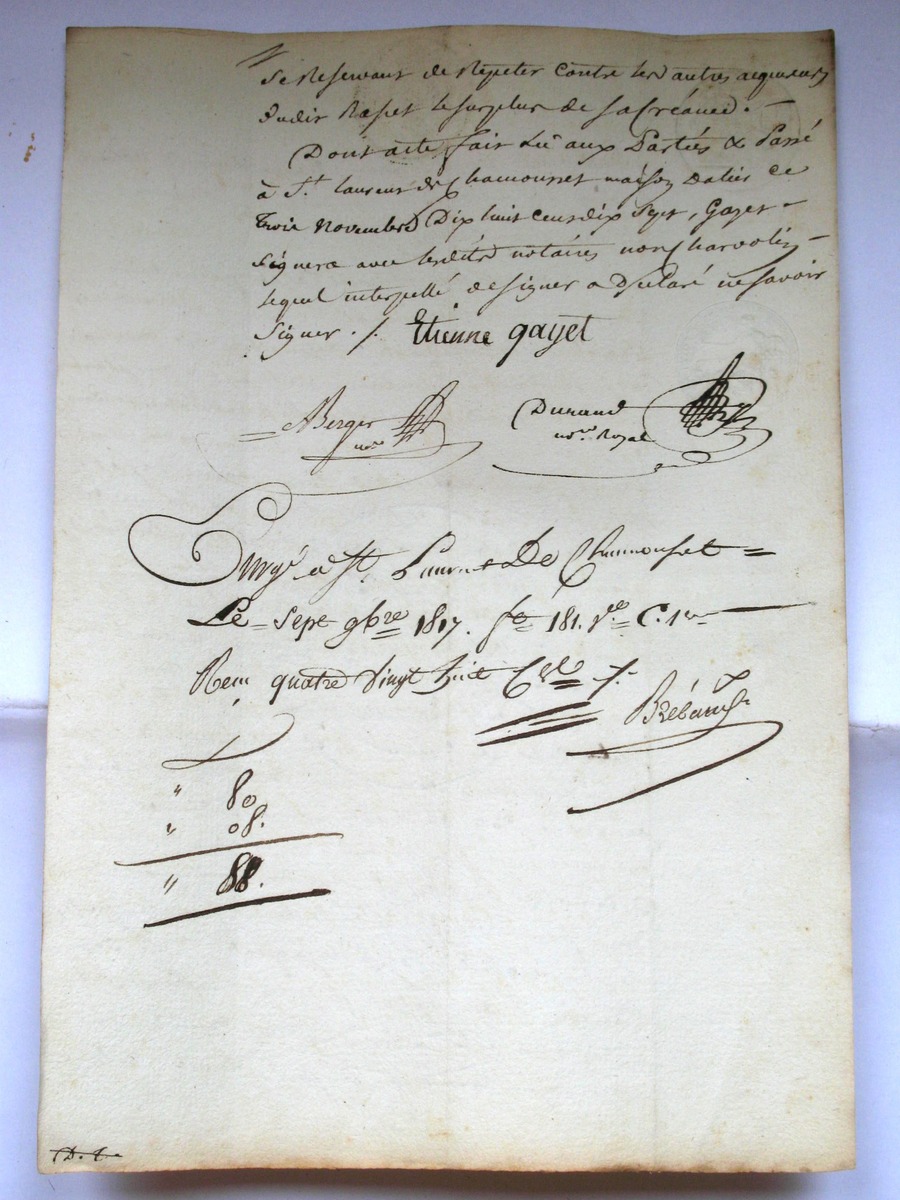 se Reservant de Repeter contre les autres acquereurs
dudit Raset le surplus de sa Créance. —
Dont acte fait Lu aux Parties & Passé
à St. laurent de Chamousset maison Dalier ce
trois novembre Dix huit cent dix sept, Gayet
signera avec lesdits notaires non Charvolin
lequel interpellé de signer a Déclaré ne savoir
signer ./. Etienne gayet
Berger
nre
Durand
nore Royal
Enregé a St. Laurent De Chamousset =
Le = sept 9bre 1817. fo 181. Ro C. 1re
Reçu quatre vingt huit
" 80
" 08.
" 88.